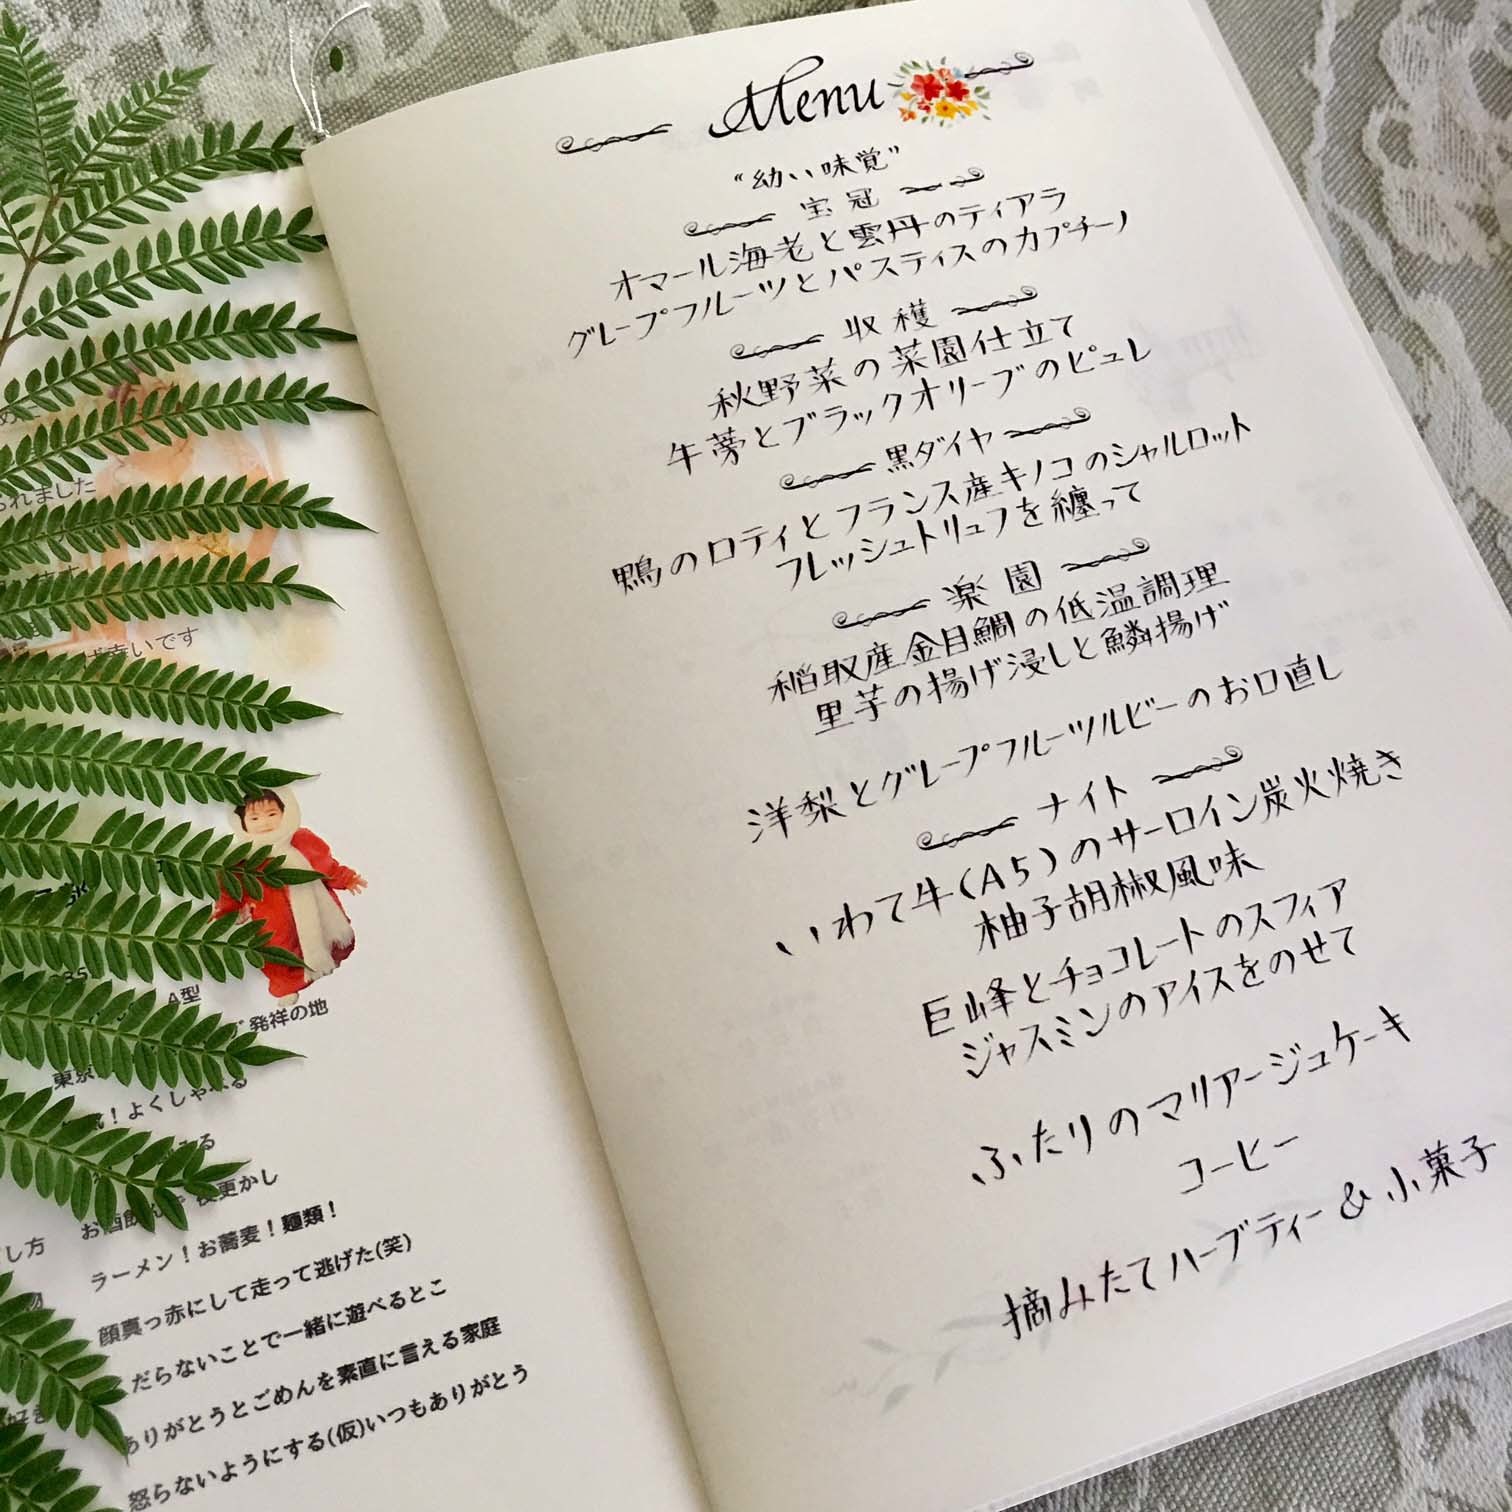 Menu
“幼い味覚”
宝冠
オマール海老と雲丹のティアラ
グレープフルーツとパスティスのカプチーノ
収穫
秋野菜の菜園仕立て
牛蒡とブラックオリーブのピュレ
黒ダイヤ
鴨のロティとフランス産キノコのシャルロット
フレッシュトリュフを纏って
楽園
稲取産金目鯛の低温調理
里芋の揚げ浸しと鱗揚げ
洋梨とグレープフルーツルビーのお口直し
ナイト
いわて牛(A5)のサーロイン炭火焼き
柚子胡椒風味
巨峰とチョコレートのスフィア
ジャスミンのアイスをのせて
ふたりのマリアージュケーキ
コーヒー
摘みたてハーブティー&小菓子
られました
幸いです
A型
発祥の地
東京
！よくしゃべる
お酒飲んで夜更かし
し方
ラーメン！お蕎麦！麺類！
顔真っ赤にして走って逃げた(笑)
だらないことで一緒に遊べるとこ
好き
ありがとうとごめんを素直に言える家庭
怒らないようにする(仮)いつもありがとう